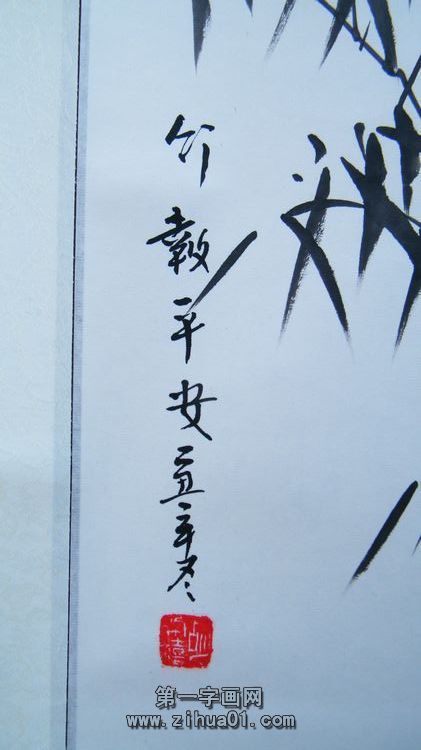 竹報平安己丑年冬
第一字画网
www.zihua01.com